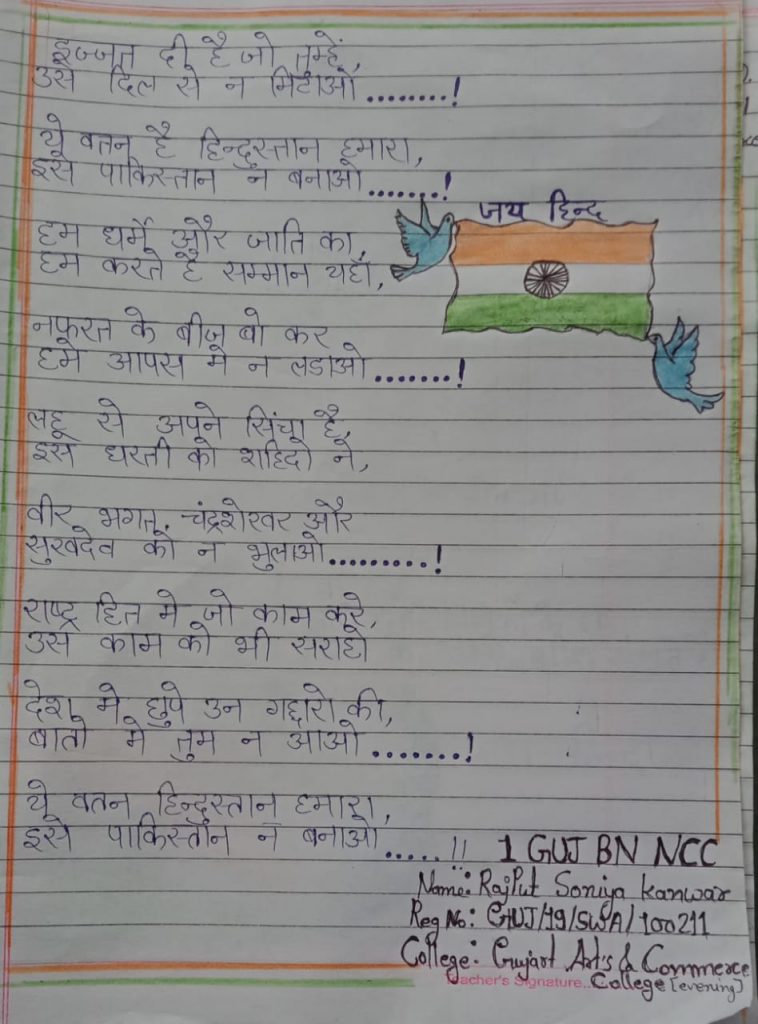 इज्जत दी है जो तुम्हें,
उसे दिल से न मिटाओ ........!
ये वतन है हिन्दुस्तान हमारा,
इसे पाकिस्तान न बनाओ .......!
जय हिन्द
हम धर्म और जाति का,
हम करते है सम्मान यहाँ,
नफरत के बीज बो कर
हमे आपस मे न लडाओ .......!
लहू से अपने सिंचा है,
इस धरती को शहिदो ने,
वीर भगत, चंद्रशेखर और
सुखदेव को न भुलाओ .........!
राष्ट्र हित मे जो काम करे,
उस काम को भी सराहो
देश मे छुपे उन गद्दारो की,
बातो मे तुम न आओ .......!
ये वतन हिन्दुस्तान हमारा,
इसे पाकिस्तान न बनाओ .....!!
1 GUJ BN NCC
Name: RajPut Soniya Kanwar
Reg No: GUJ/19/SWA/100211
College: Gujart Art's & Commerce
Teacher's Signature.. College [evening]